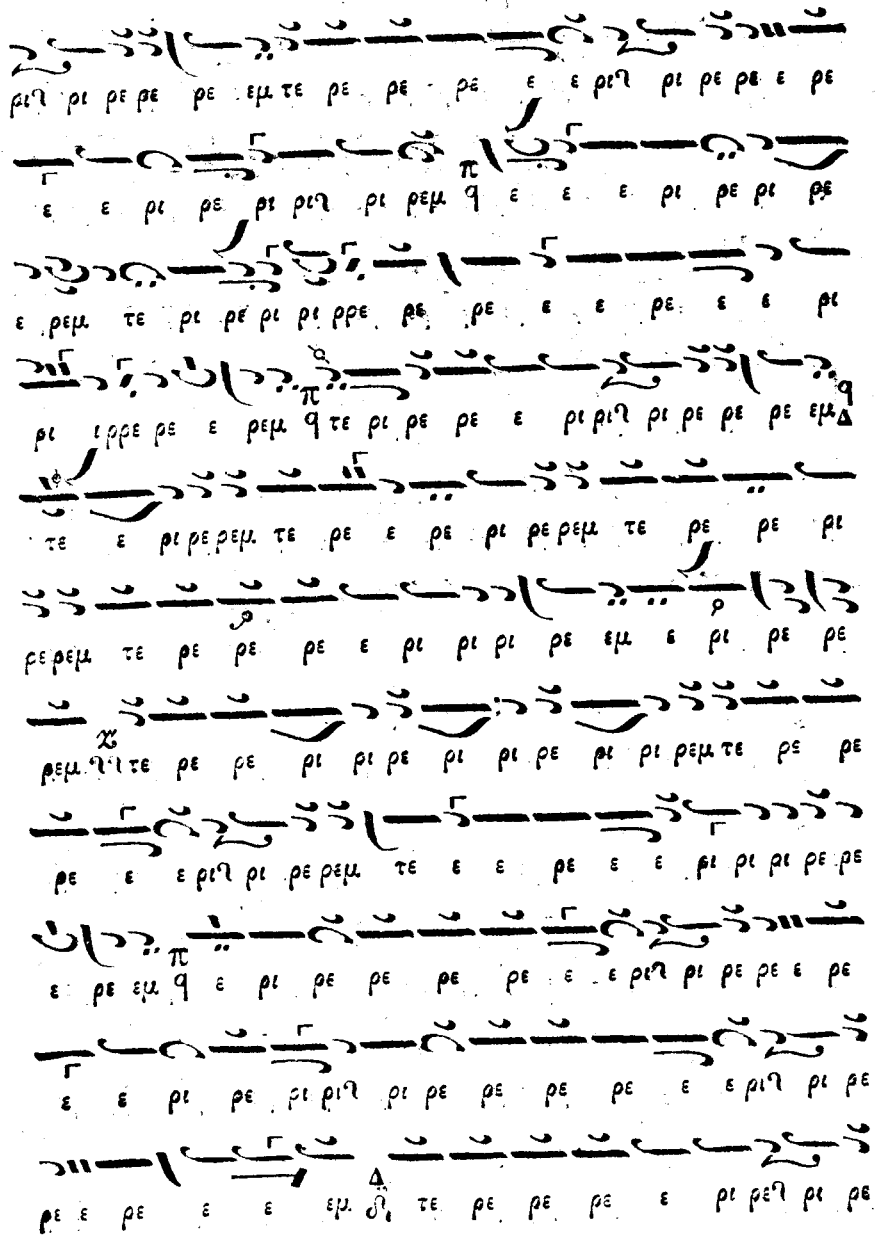 ριϡ ρι ρε ρε ρε εμ τε ρε ρε ρε ε ε ριϡ ρι ρε ρε ε ρε
ε ε ρι ρε ρι ριϡ ρι ρεμ π q ε ε ε ρι ρε ρι ρε
ε ρεμ τε ρι ρε ρι ρι ρρε ρε ρε ε ε ρε ε ε ρι
ρι ι ρρε ρε ε ρεμ π q τε ρι ρε ρε ε ρι ριϡ ρι ρε ρε ρε εμ q Δ
τε ε ρι ρε ρεμ τε ρε ε ρε ρι ρε ρεμ τε ρε ρε ρι
ρε ρεμ τε ρε ρε ρε ε ρι ρι ρι ρε εμ ε ρι ρε ρε
ρεμ τε ρε ρε ρι ρι ρε ρι ρι ρε ρι ρι ρεμ τε ρε ρε
ρε ε ε ριϡ ρι ρε ρεμ τε ε ε ρε ε ε ρι ρι ρι ρε ρε
ε ρε εμ π q ε ρι ρε ρε ρε ρε ε ε ριϡ ρι ρε ρε ε ρε
ε ε ρι ρε ρι ριϡ ρι ρε ρε ρε ρε ε ε ριϡ ρι ρε
ρε ε ρε ε ε εμ Δ τε ρε ρε ρε ε ρι ρεϡ ρι ρε